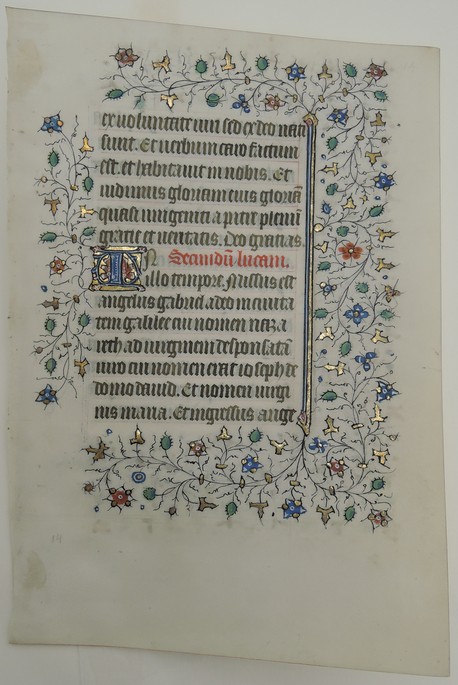 ex uoluntate uiri sed ex deo nati
sunt. Et uerbum caro factum
est. et habitauit in nobis. Et
uidimus gloriam eius gloriā
quasi unigeniti a patre plenū
gratie et ueritatis. Deo gratias
Secundū lucam.
In illo tempore. Missus est
angelus gabriel a deo in ciuita
tem galilee cui nomen naza
reth ad uirginem desponsatā
uiro cui nomen erat ioseph de
domo dauid. Et nomen uirgi
nis maria. Et ingressus ange